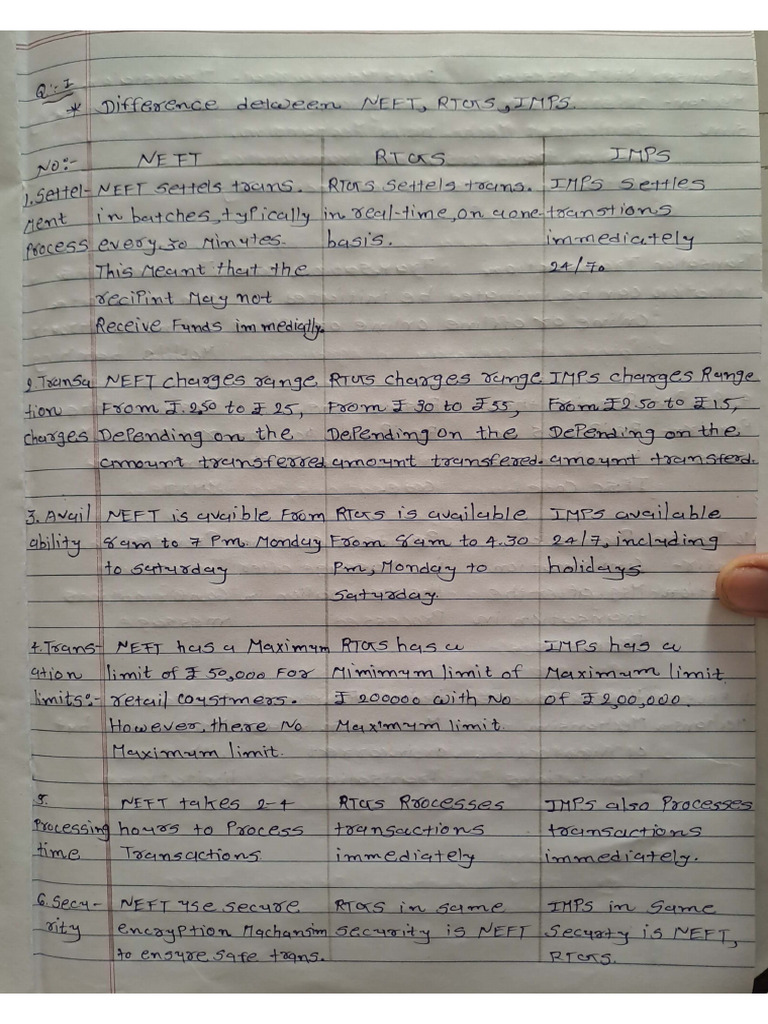 Q:-I
* Difference between NEFT, RTGS, IMPS.
No:- NEFT RTGS IMPS
1. Settel- NEFT settels trans. RTGS settels trans. IMPS settles
ment in batches, typically in real-time, on a one- transtions
Process every 30 minutes. basis. immediately
This meant that the 24/7.
recipint may not
Receive Funds immediatly.
2. Transa NEFT charges range RTGS charges range IMPS charges Range
tion From ₹.2.50 to ₹ 25, From ₹ 30 to ₹ 55, From ₹2.50 to ₹15,
charges Depending on the Depending on the Depending on the
amount transferred amount transfered. amount transferd.
3. Avail NEFT is avaible From RTGS is available IMPS available
ability 8am to 7 Pm. Monday From 8am to 4.30 24/7, including
to saturday Pm, Monday to holidays
Saturday.
4. Trans- NEFT has a Maximum RTGS has a IMPS has a
ation limit of ₹ 50,000 For Mimimum limit of Maximum limit
limits:- retail coustmers. ₹ 200000 with No of ₹2,00,000.
However, there No Maximum limit.
Maximum limit.
5. NEFT takes 2-4 RTGS Rrocesses IMPS also Processes
Processing hours to Process transactions transactions
time Transactions immediately immediately.
6. Secu- NEFT use secure RTGS in same IMPS in Same
rity encryption Machanism security is NEFT Securty is NEFT,
to ensure safe trans. RTGS.